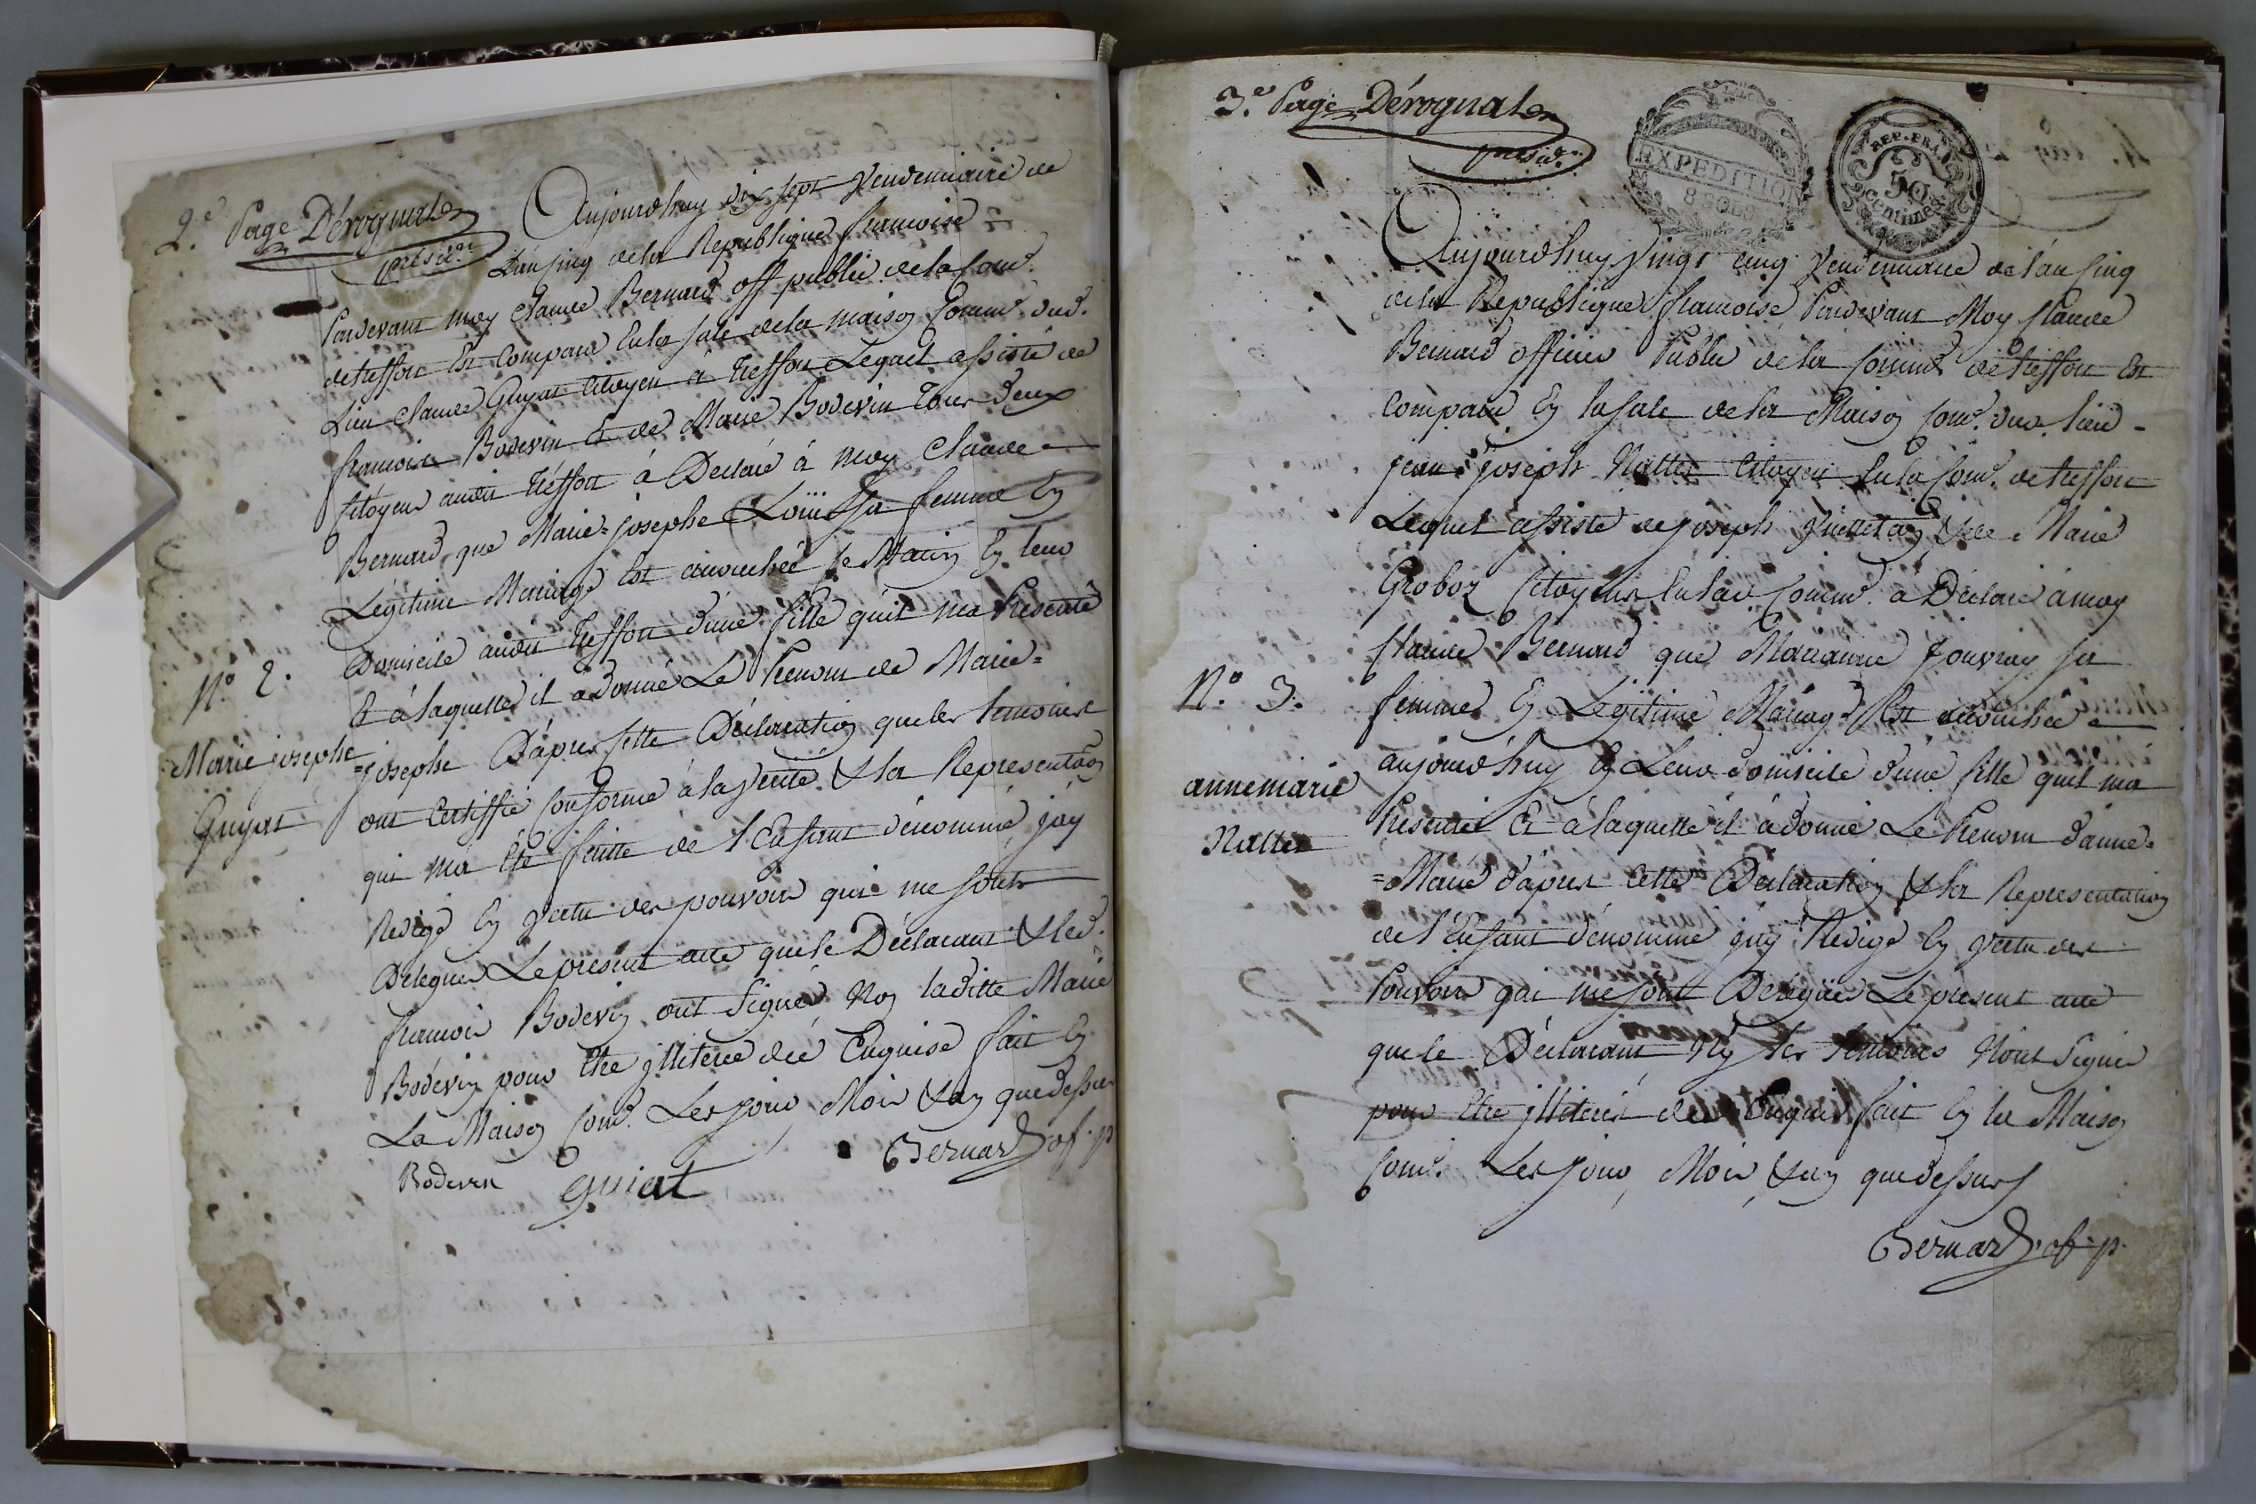 2.e Page Dérognat
présid.t
Aujourdhuy dix sept Vendemiaire de
L'an sinq de la Republique francoise
Pardevant moy Claude Bernard off public de la Com.e
de treffort Est Comparu En la sale de la maison Comm.e dud.
Lieu Claude Guyat Citoyen à treffort Lequel assisté de
francois Bodevin Et de Marie Bodevin tous deux
Citoyens audit treffort à Declaré à moy Claude
Bernard que Marie=josephe sa femme En
Légitime Mariage Est accouchée ce Matin En leur
Domicile audit treffort d'une fille qu'il ma Presenté
Et à laquelle il à donné Le Prenom de Marie=
N.o 2.
Marie josephe
Guyat
=josephe D'après cette Déclaration que les temoins
ont Certiffié Conforme à la Verité & la Representâon
qui m'a Eté faitte de l'Enfant dénommé, j'ay
Redigé En Vertu des pouvoirs qui me sonts
Delegués Le présent acte que le Déclarant & led.
francois Bodevin ont signé, Non laditte Marie
Bodevin pour Etre jlliterée de ce Enquise fait En
La Maison Com.e Les jour, Mois & an que dessus
Bodevin guiat Bernard of. p
3.e Page Dérognat
présid.t
EXPEDITION
8 SOLS
REP. FRA.
50
centimes
Aujourdhuy Vingt cinq Vendemiaire de l'an sinq
de la Republique francoise Pardevant Moy Claude
Bernard officier Public de la Comm.e de treffort Est
Comparu En la sale de la Maison Com.e dud. lieu -
jean joseph Nallet Citoyen En la Com.e de treffort
Lequel assisté de joseph & de Marie
Groboz Citoyens En lad. Comm.e à Déclaré à moy
Claude Bernard que Marianne sa
N.o 3.
annemarie
Nallet
femme En Légitime Mariage Est accouchée
aujourd'huy En Leur domicile d'une fille quil ma
Presentée Et à laquelle il à donné Le Prenom d'anne=
=Marie d'après cette Déclaration & la Representation
de l'Enfant dénommé j'ay Redigé En Vertu des
Pouvoirs qui me sont Delégués Le present acte
que le Déclarant Ny les temoins N'ont signé
pour Etre jlliterés de ce Enquis fait En la Maison
Com.e Les jour, Mois, & an que dessus
Bernard of. p.